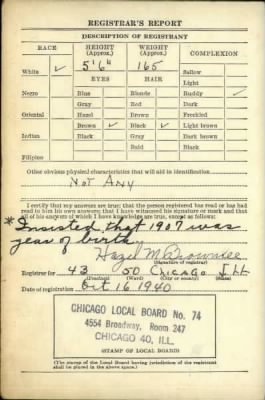 REGISTRAR'S REPORT
DESCRIPTION OF REGISTRANT
RACE HEIGHT (Approx.) WEIGHT (Approx.) COMPLEXION
White ✓ 5'6" 165 Sallow
EYES HAIR Light
Negro Blue Blonde Ruddy ✓
Gray Red Dark
Oriental Hazel Brown Freckled
Brown ✓ Black ✓ Light brown
Indian Black Gray Dark brown
Bald Black
Filipino
Other obvious physical characteristics that will aid in identification
Not Any
I certify that my answers are true; that the person registered has read or has had
read to him his own answers; that I have witnessed his signature or mark and that
all of his answers of which I have knowledge are true, except as follows:
* Insisted that 1907 was
year of birth
Hazel M. Brownlee
(Signature of registrar)
Registrar for 43 50 Chicago Ill
(Precinct) (Ward) (City or county) (State)
Date of registration Oct 16 1940
CHICAGO LOCAL BOARD No. 74
4554 Broadway, Room 247
CHICAGO 40, ILL.
(STAMP OF LOCAL BOARD)
(The stamp of the Local Board having jurisdiction of the registrant
shall be placed in the above space.)